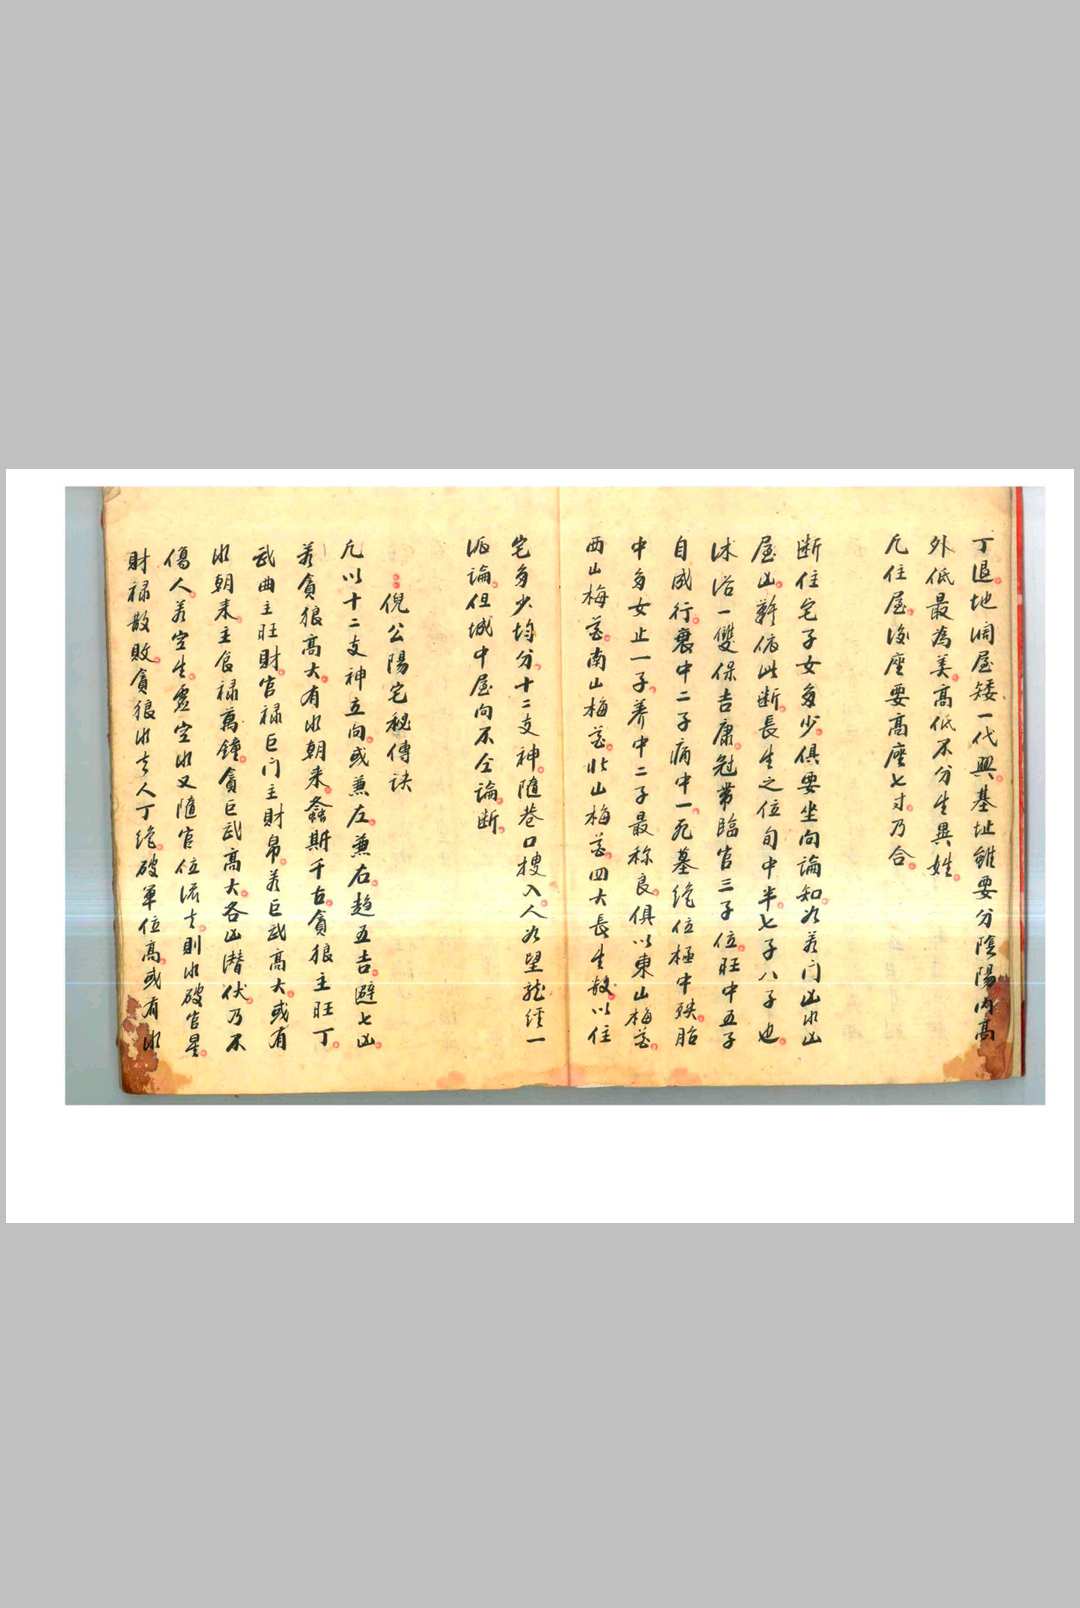 丁退。地濶屋矮一代興。基址雖要分陰陽內高
外低最為美。高低不分生異姓。
凡住屋。後座要高座七寸。乃合。
断住宅子女多少。俱要坐向論知。如若门凶水凶
屋凶。難依此断。長生之位旬中半。七子八子也。
沐浴一雙保吉康。冠帶臨官三子位。旺中五子
自成行。衰中二子病中一。死墓絶位極中殃。胎
中多女止一子。养中二子最称良。俱以東山梅花。
西山梅花。南山梅花。北山梅花。四大長生。故以住
宅多少均分。十二支神。隨巷口
入。人如望龍經一
派論。但城中屋向不仝論断。
倪公陽宅秘傳訣
凡以十二支神立向。或兼左。兼右。趋五吉。避七凶。
若貪狼高大。有水朝来。螽斯千古。貪狼主旺丁。
武曲主旺財。官禄巨门主財帛。若巨武高大。或有
水朝来。主食禄萬鐘。貪巨武高大。各凶潜伏。乃不
傷人。若空生。虚空水又隨官位流去。則水破官星。
財禄散敗。貪狼水去人丁絶。破軍位高。或有水